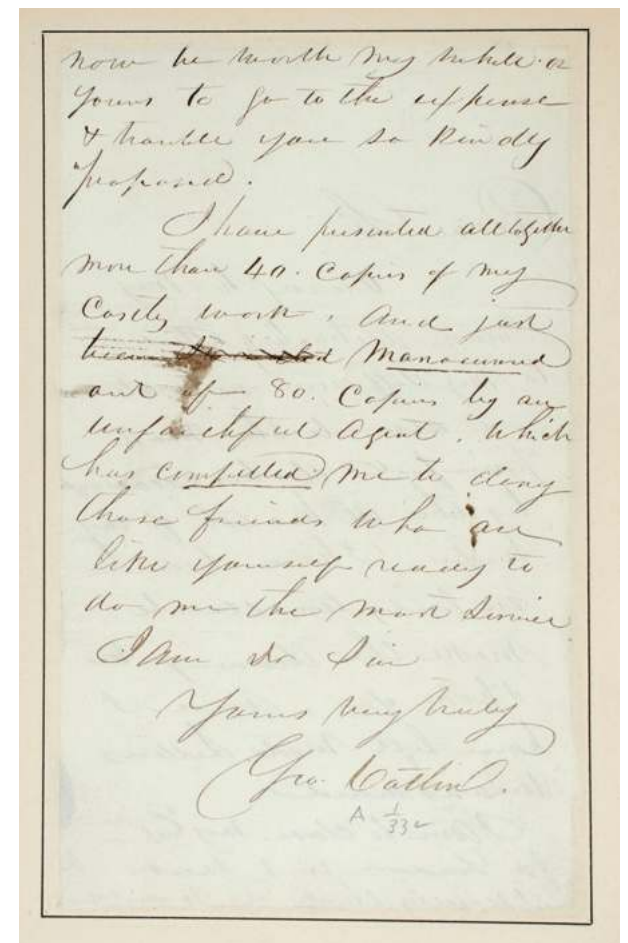 now be worth my while or
yours to go to the expense
& trouble you so kindly
propose.
I have presented alltogether
more than 40. Copies of my
Costly work. And just
been Manoeuvred
out of 80. Copies by an
unfaithful Agent. Which
has compelled me to deny
those friends who are
like yourself ready to
do me the most Service
I am Dr Sir
Yours very truly
Geo. Catlin.
A 1/332